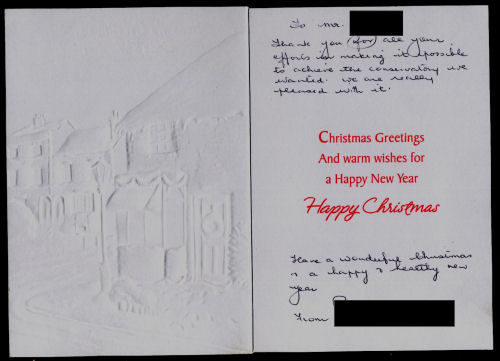 To Mr.
Thank you for all your
efforts in making it possible
to achieve the conservatory we
wanted. We are really
pleased with it.
Christmas Greetings
And warm wishes for
a Happy New Year
Happy Christmas
Have a wonderful Christmas
& a happy & healthy new
year
From